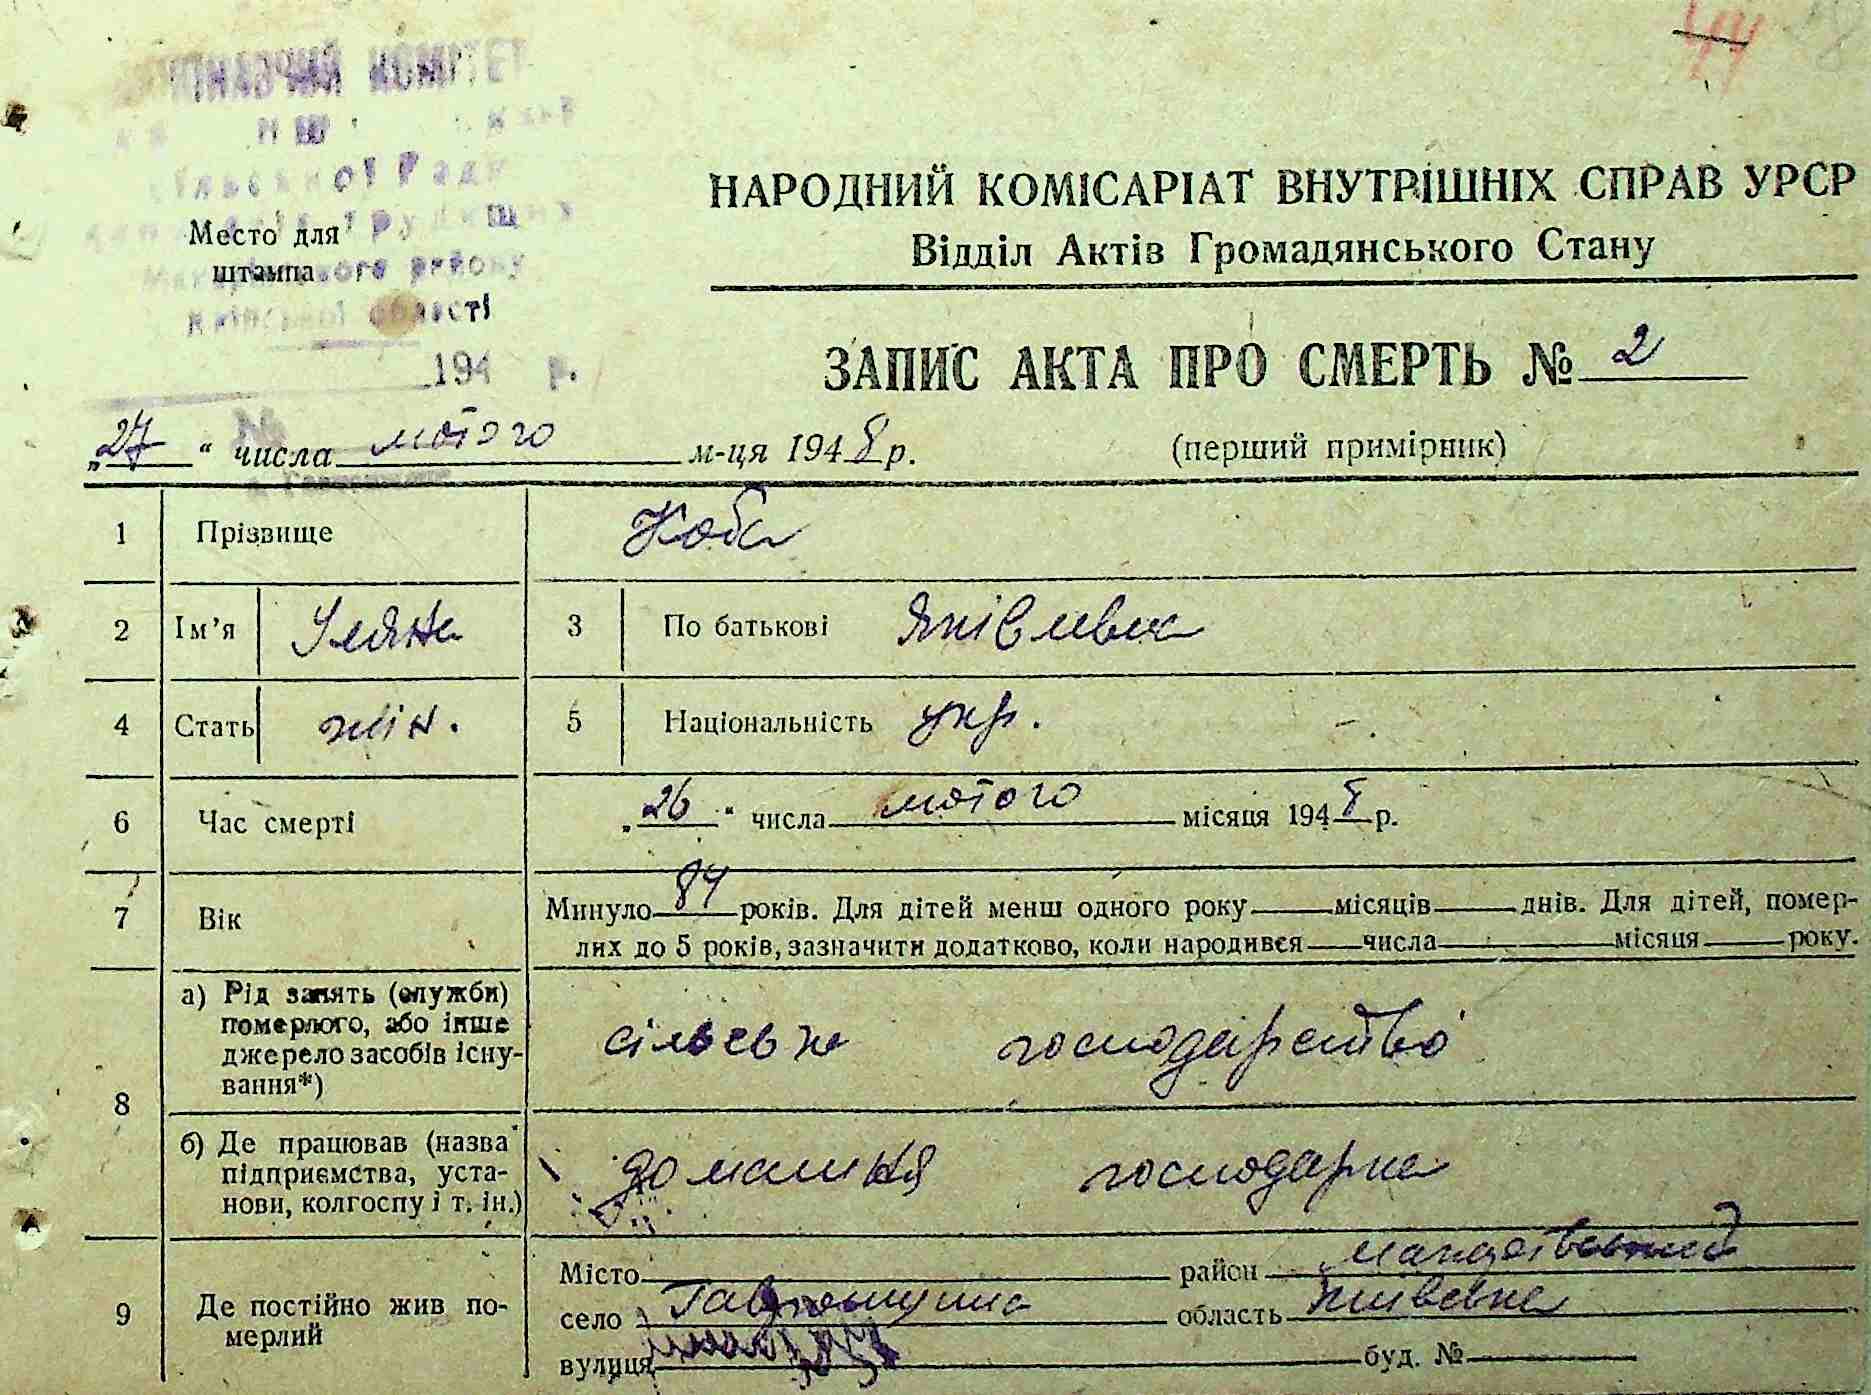 44
КОМІТЕТ
Сільської Ради
Место для
штампа
району
Київської області
194 р.
НАРОДНИЙ КОМІСАРІАТ ВНУТРІШНІХ СПРАВ УРСР
Відділ Актів Громадянського Стану
ЗАПИС АКТА ПРО СМЕРТЬ № 2
„27“ числа лютого м-ця 1948 р. (перший примірник)
1 Прізвище Коба
2 Ім’я Уляна 3 По батькові Яківлівна
4 Стать жін. 5 Національність укр.
6 Час смерті „26“ числа лютого місяця 1948 р.
7 Вік Минуло 84 років. Для дітей менш одного року місяців днів. Для дітей, помер-
лих до 5 років, зазначити додатково, коли народився числа місяця року.
8 а) Рід занять (служби)
померлого, або інше
джерело засобів існу-
вання*)
сільське господарство
б) Де працював (назва
підприємства, уста-
нови, колгоспу і т. ін.)
домашня господарка
9 Де постійно жив по-
мерлий
Місто район Макарівський
село Гавронщина область Київська
вулиця буд. №